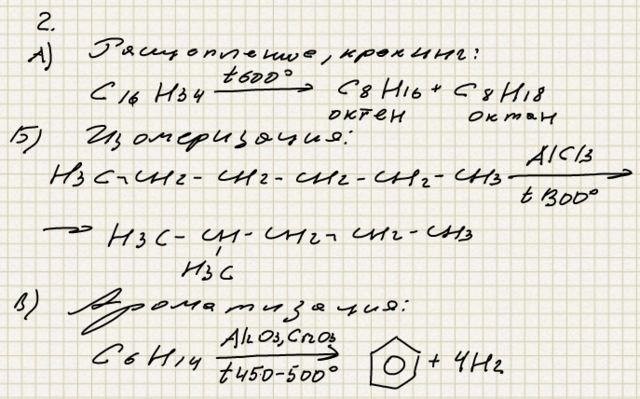 2.
А) Расщепление, крекинг:
C16 H34 t600° → C8H16 + C8H18
октен октан
Б) Изомеризация:
H3C-CH2-CH2-CH2-CH2-CH3 AlCl3 t300° →
→ H3C-CH-CH2-CH2-CH3
H3C
В) Ароматизация:
C6H14 Al2O3, Cr2O3 t450-500° → + 4H2